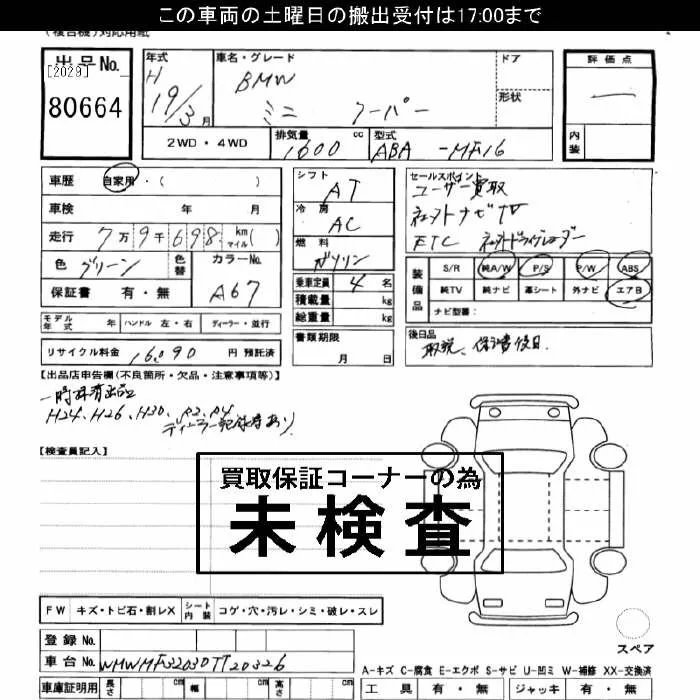 この車両の土曜日の搬出受付は17:00まで
(複合機)対応用紙
出品No.
[2029]
80664
年式
H
19/3月
車名・グレード
BMW
ミニ クーパー
ドア
形状
評価点
内装
2WD・4WD
排気量
1600 cc
型式
ABA-MF16
車歴 自家用・( )
車検 年 月
走行 7万9千698 km マイル( )
色 グリーン 色替
カラーNo.
A67
保証書 有・無
シフト
AT
冷房
AC
燃料
ガソリン
乗車定員 4 名
積載量 kg
総重量 kg
セールスポイント
ユーザー買取
社外ナビTV
ETC 社外ドライブレコーダー
装備品
S/R 純A/W P/S P/W ABS
純TV 純ナビ 革シート 外ナビ エアB
ナビ型番:
モデル年式 年 ハンドル 左・右 ディーラー・並行
リサイクル料金 16,090 円 預託済
書類期限
月 日
後日品
取説、保証書後日
【出品店申告欄(不良箇所・欠品・注意事項等)】
一時抹消出品
H24、H26、H30、R2、R4
ディーラー記録簿あり
【検査員記入】
買取保証コーナーの為
未検査
FW キズ・トビ石・割レX シート内装 コゲ・穴・汚レ・シミ・破レ・スレ
登録No.
車台No. WMWMF32030TT20326
スペア
A-キズ C-腐食 E-エクボ S-サビ U-凹ミ W-補修 XX-交換済
車庫証明用 長さ cm 幅 cm 高さ cm
工具 有・無 ジャッキ 有・無